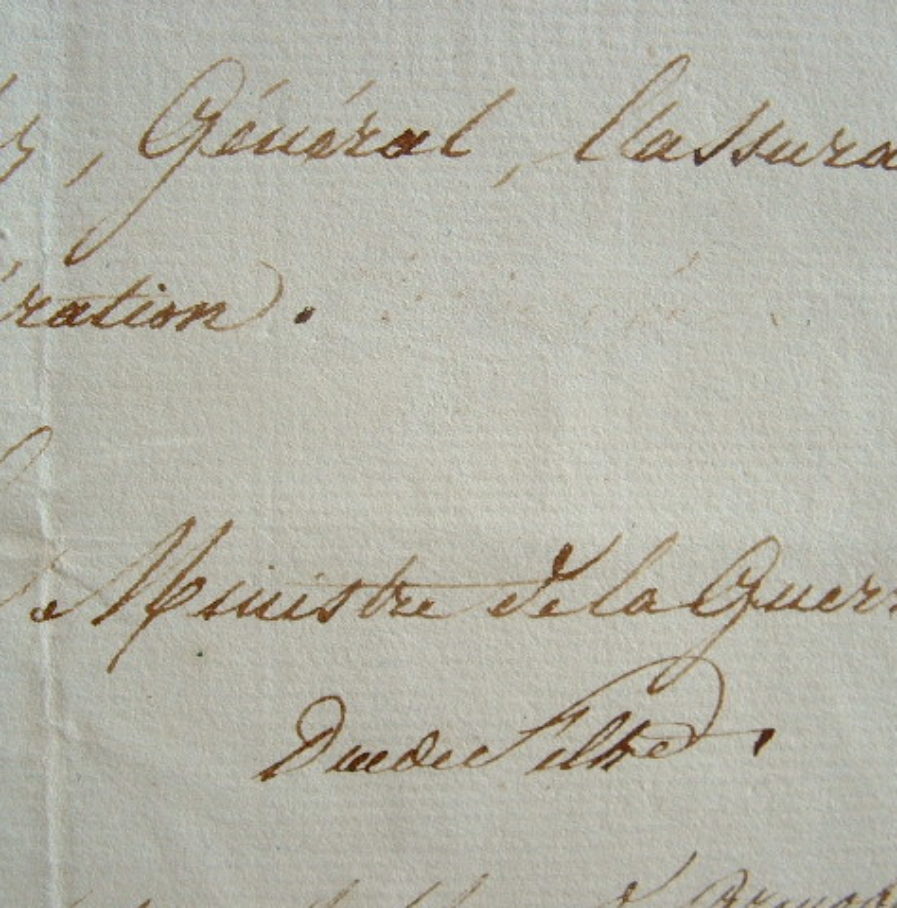 , Général, l'assura
ération.
Le Ministre de la Guerr
Duc de Feltre.